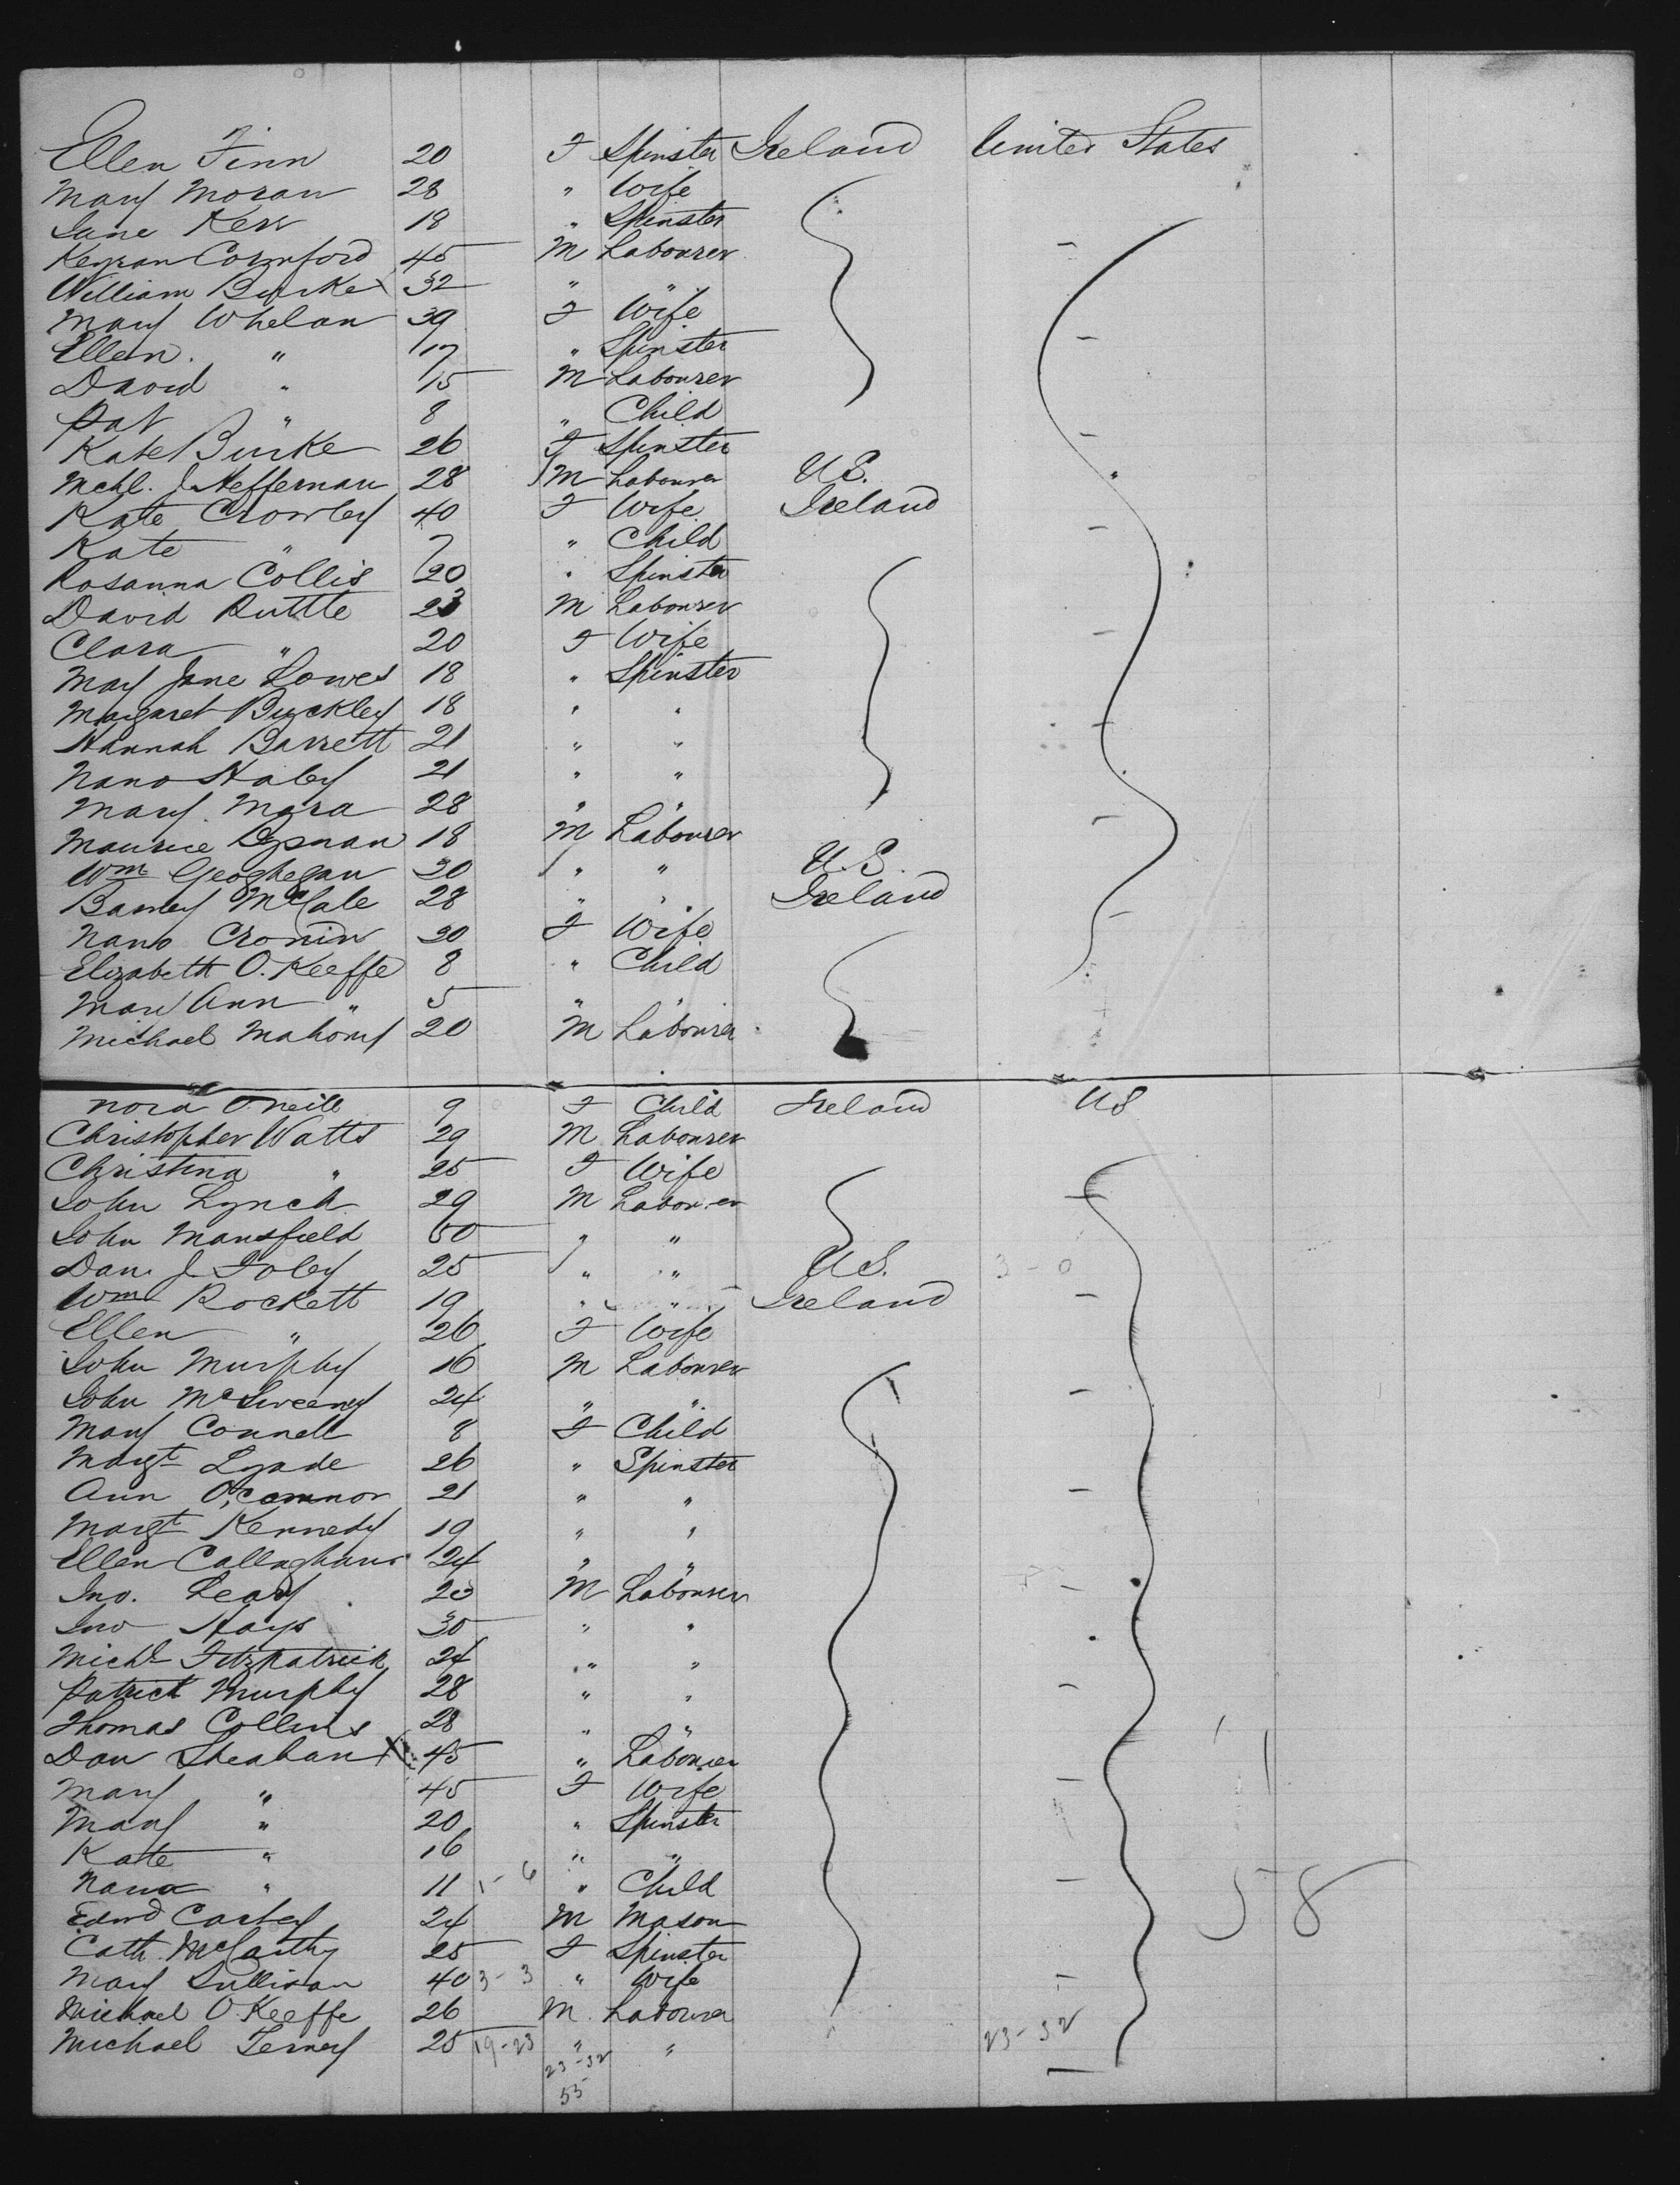 Ellen Finn 20 F Spinster Ireland United States
Mary Moran 28 " Wife
Jane Kerr 18 " Spinster
Keyran Cornford 45 M Labourer
William Burke 32 " "
Mary Whelan 39 F Wife
Ellen " 17 " Spinster
David " 15 M Labourer
Pat " 8 " Child
Kate Burke 26 F Spinster
Mchl. J. Heffernan 28 M Labourer U.S.
Kate Crowley 40 F Wife Ireland
Kate " 7 " Child
Rosanna Collis 20 " Spinster
David Ruttle 23 M Labourer
Clara " 20 F Wife
Mary Jane Lowes 18 " Spinster
Margaret Buckley 18 " "
Hannah Barrett 21 " "
Nano Haley 21 " "
Mary Mara 28 " "
Maurice 18 M Labourer
Wm Geoghegan 30 " " U.S.
Barney McCale 28 " " Ireland
Nano Cronin 30 F Wife
Elizabeth O.Keeffe 8 " Child
Mary Ann " 5 " "
Michael Mahony 20 M Labourer
Nora O'Neill 9 F Child Ireland US
Christopher Watts 29 M Labourer
Christina " 25 F Wife
John Lynch 29 M Labourer
John Mansfield 60 " "
Dan. J. Foley 25 " " U.S. 3-0
Wm Rockett 19 " " Ireland
Ellen " 26 F Wife
John Murphy 16 M Labourer
John McSweeney 24 " "
Mary Connell 8 F Child
Margt Lyade 26 " Spinster
Ann O'Connor 21 " "
Margt Kennedy 19 " "
Ellen Callaghan 24 " "
Jno. Leary 20 M Labourer
Jno Hays 30 " "
Michl Fitzpatrick 24 " "
Patrick Murphy 28 " "
Thomas Collins 28 " "
Dan Sheahan X 45 " Labourer
Mary " 45 F Wife
Mary " 20 " Spinster
Kate " 16 " "
Nana " 11 1-6 " Child
Edmd Carbey 24 M Mason 58
Cath McCarthy 25 F Spinster
Mary Sullivan 40 3-3 " Wife
Michael O.Keeffe 26 M. Labourer
Michael Ferney 25 19-23 " " 23-32
23-32
55